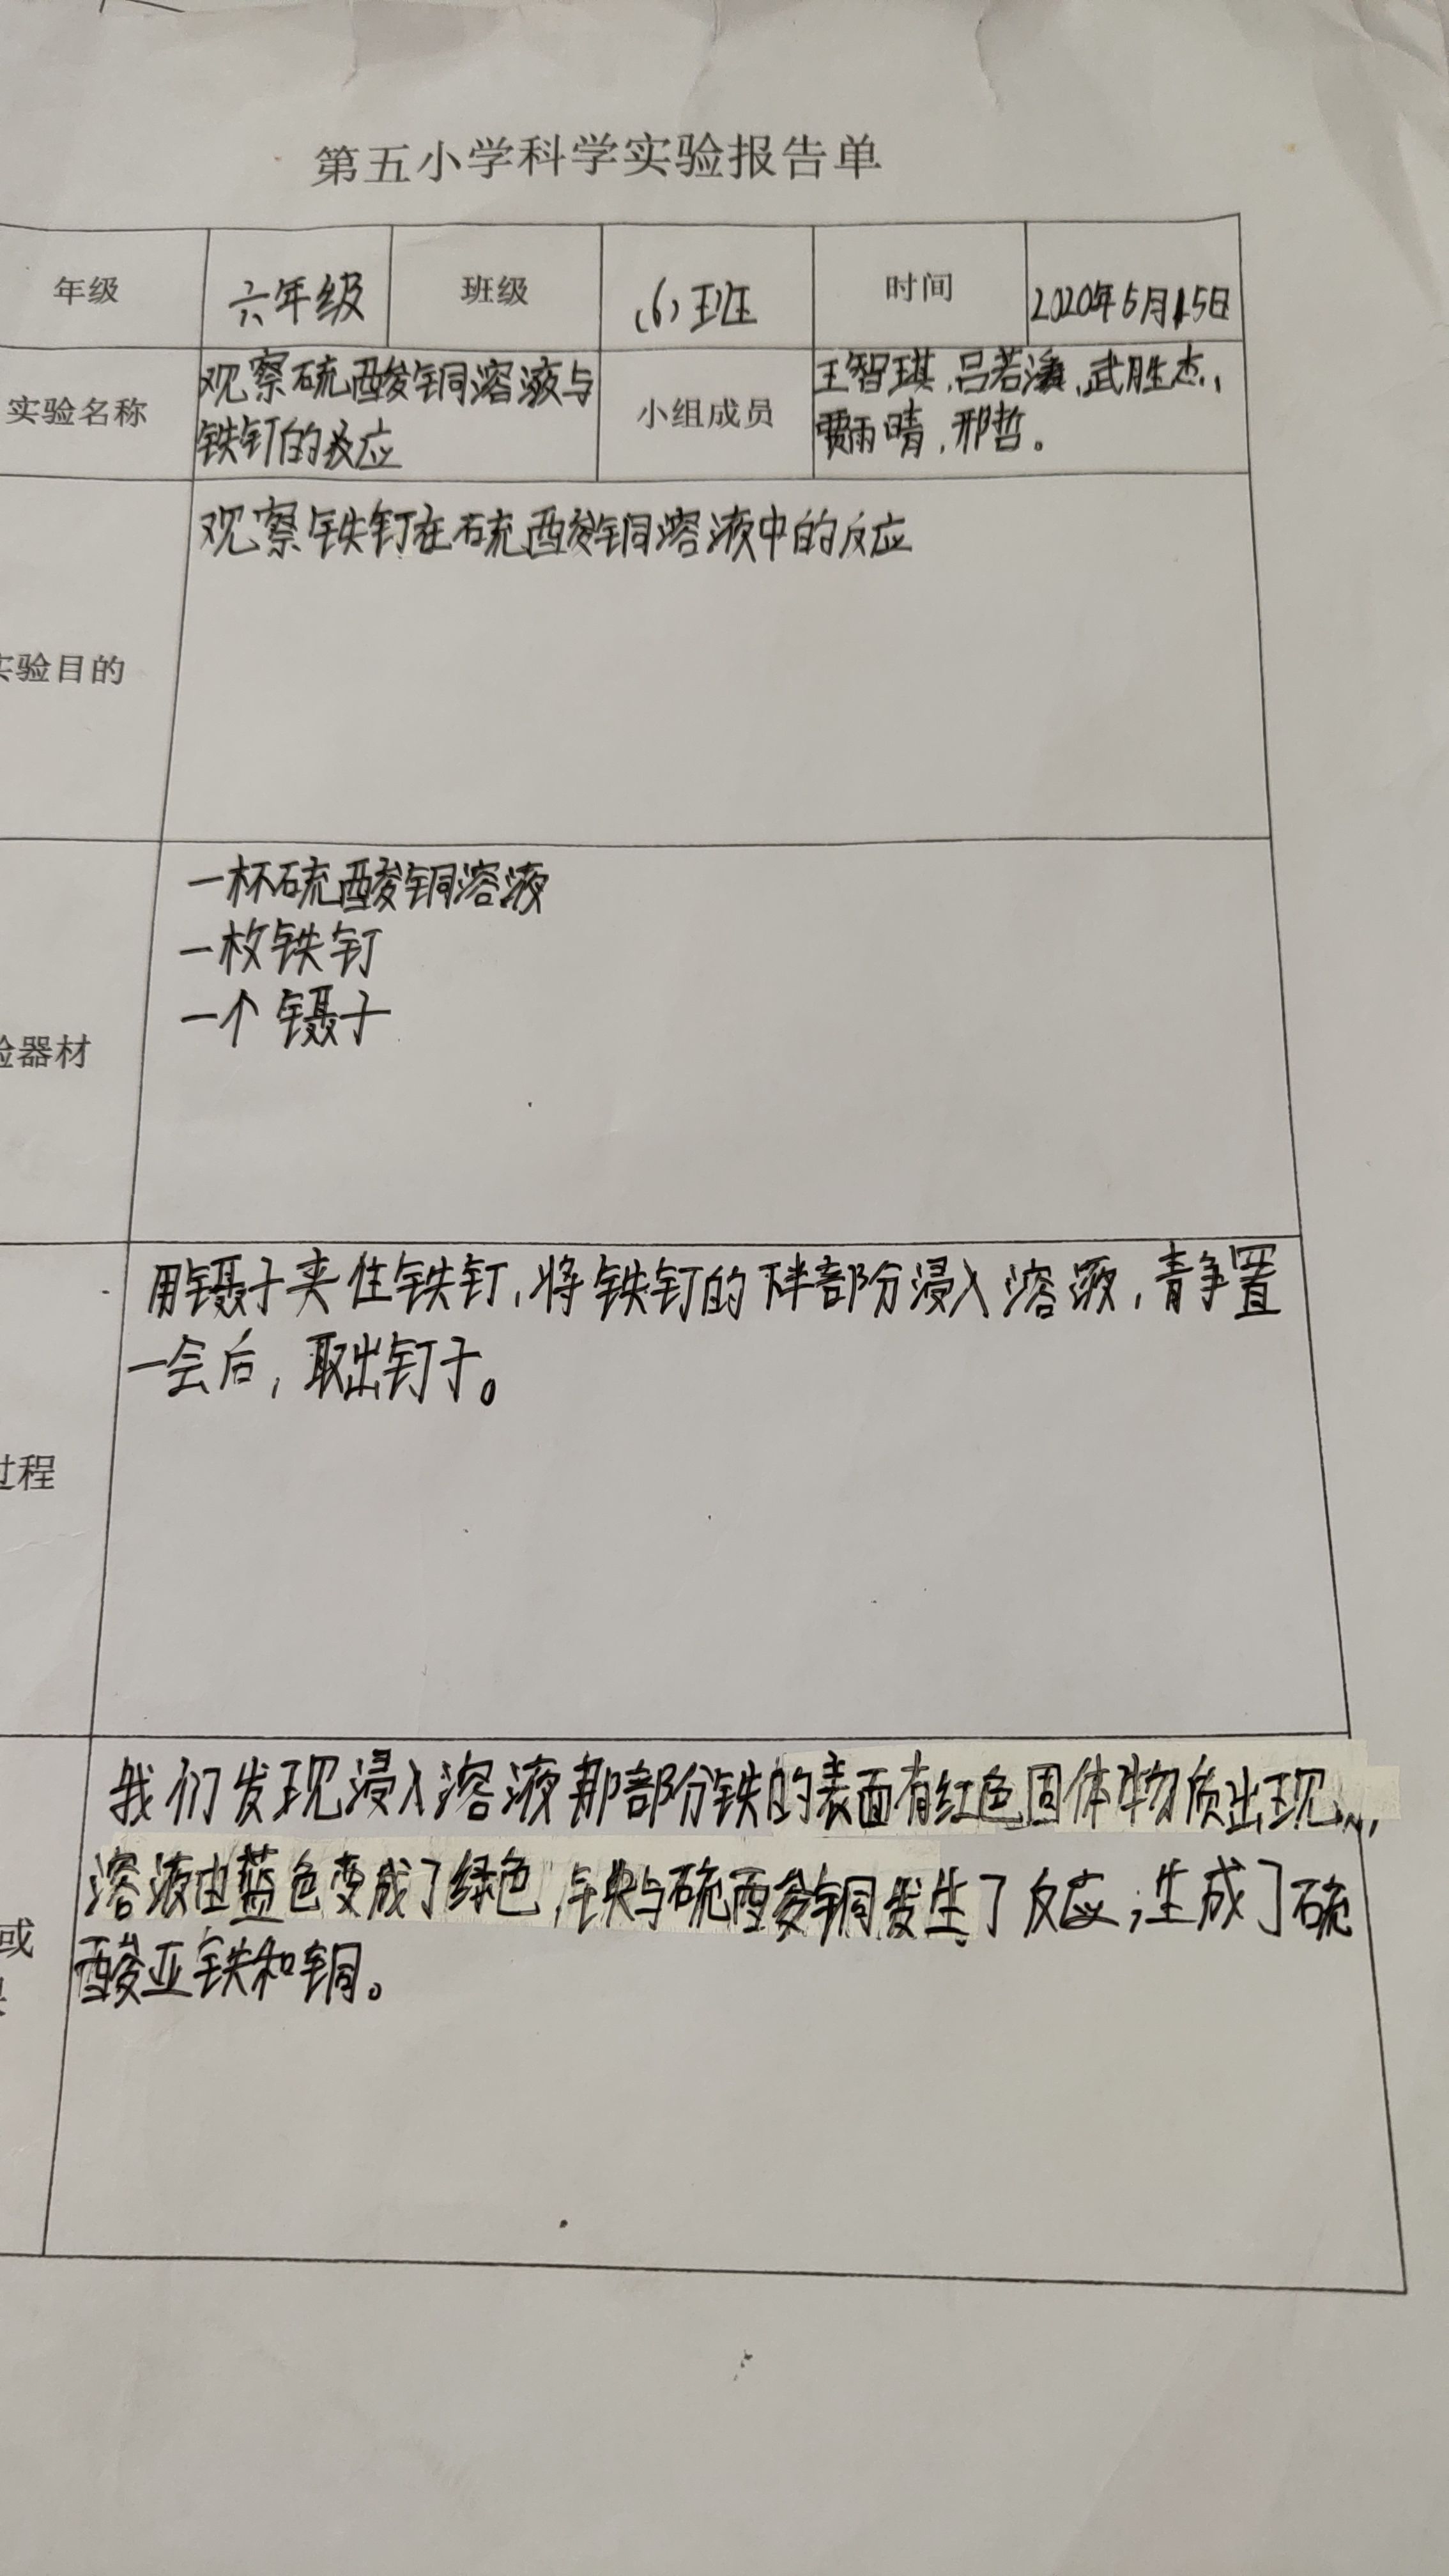 第五小学科学实验报告单
年级 六年级 班级 (6)班 时间 2020年5月15日
实验名称 观察硫酸铜溶液与 小组成员 王智琪、吕若、武胜杰、
铁钉的反应 贾雨晴、邢哲。
观察铁钉在硫酸铜溶液中的反应
实验目的
一杯硫酸铜溶液
一枚铁钉
一个镊子
验器材
用镊子夹住铁钉,将铁钉的下半部分浸入溶液,静置
一会后,取出钉子。
过程
我们发现浸入溶液那部分铁的表面有红色固体物质出现,
溶液由蓝色变成了绿色,铁与硫酸铜发生了反应,生成了硫
或
酸亚铁和铜。